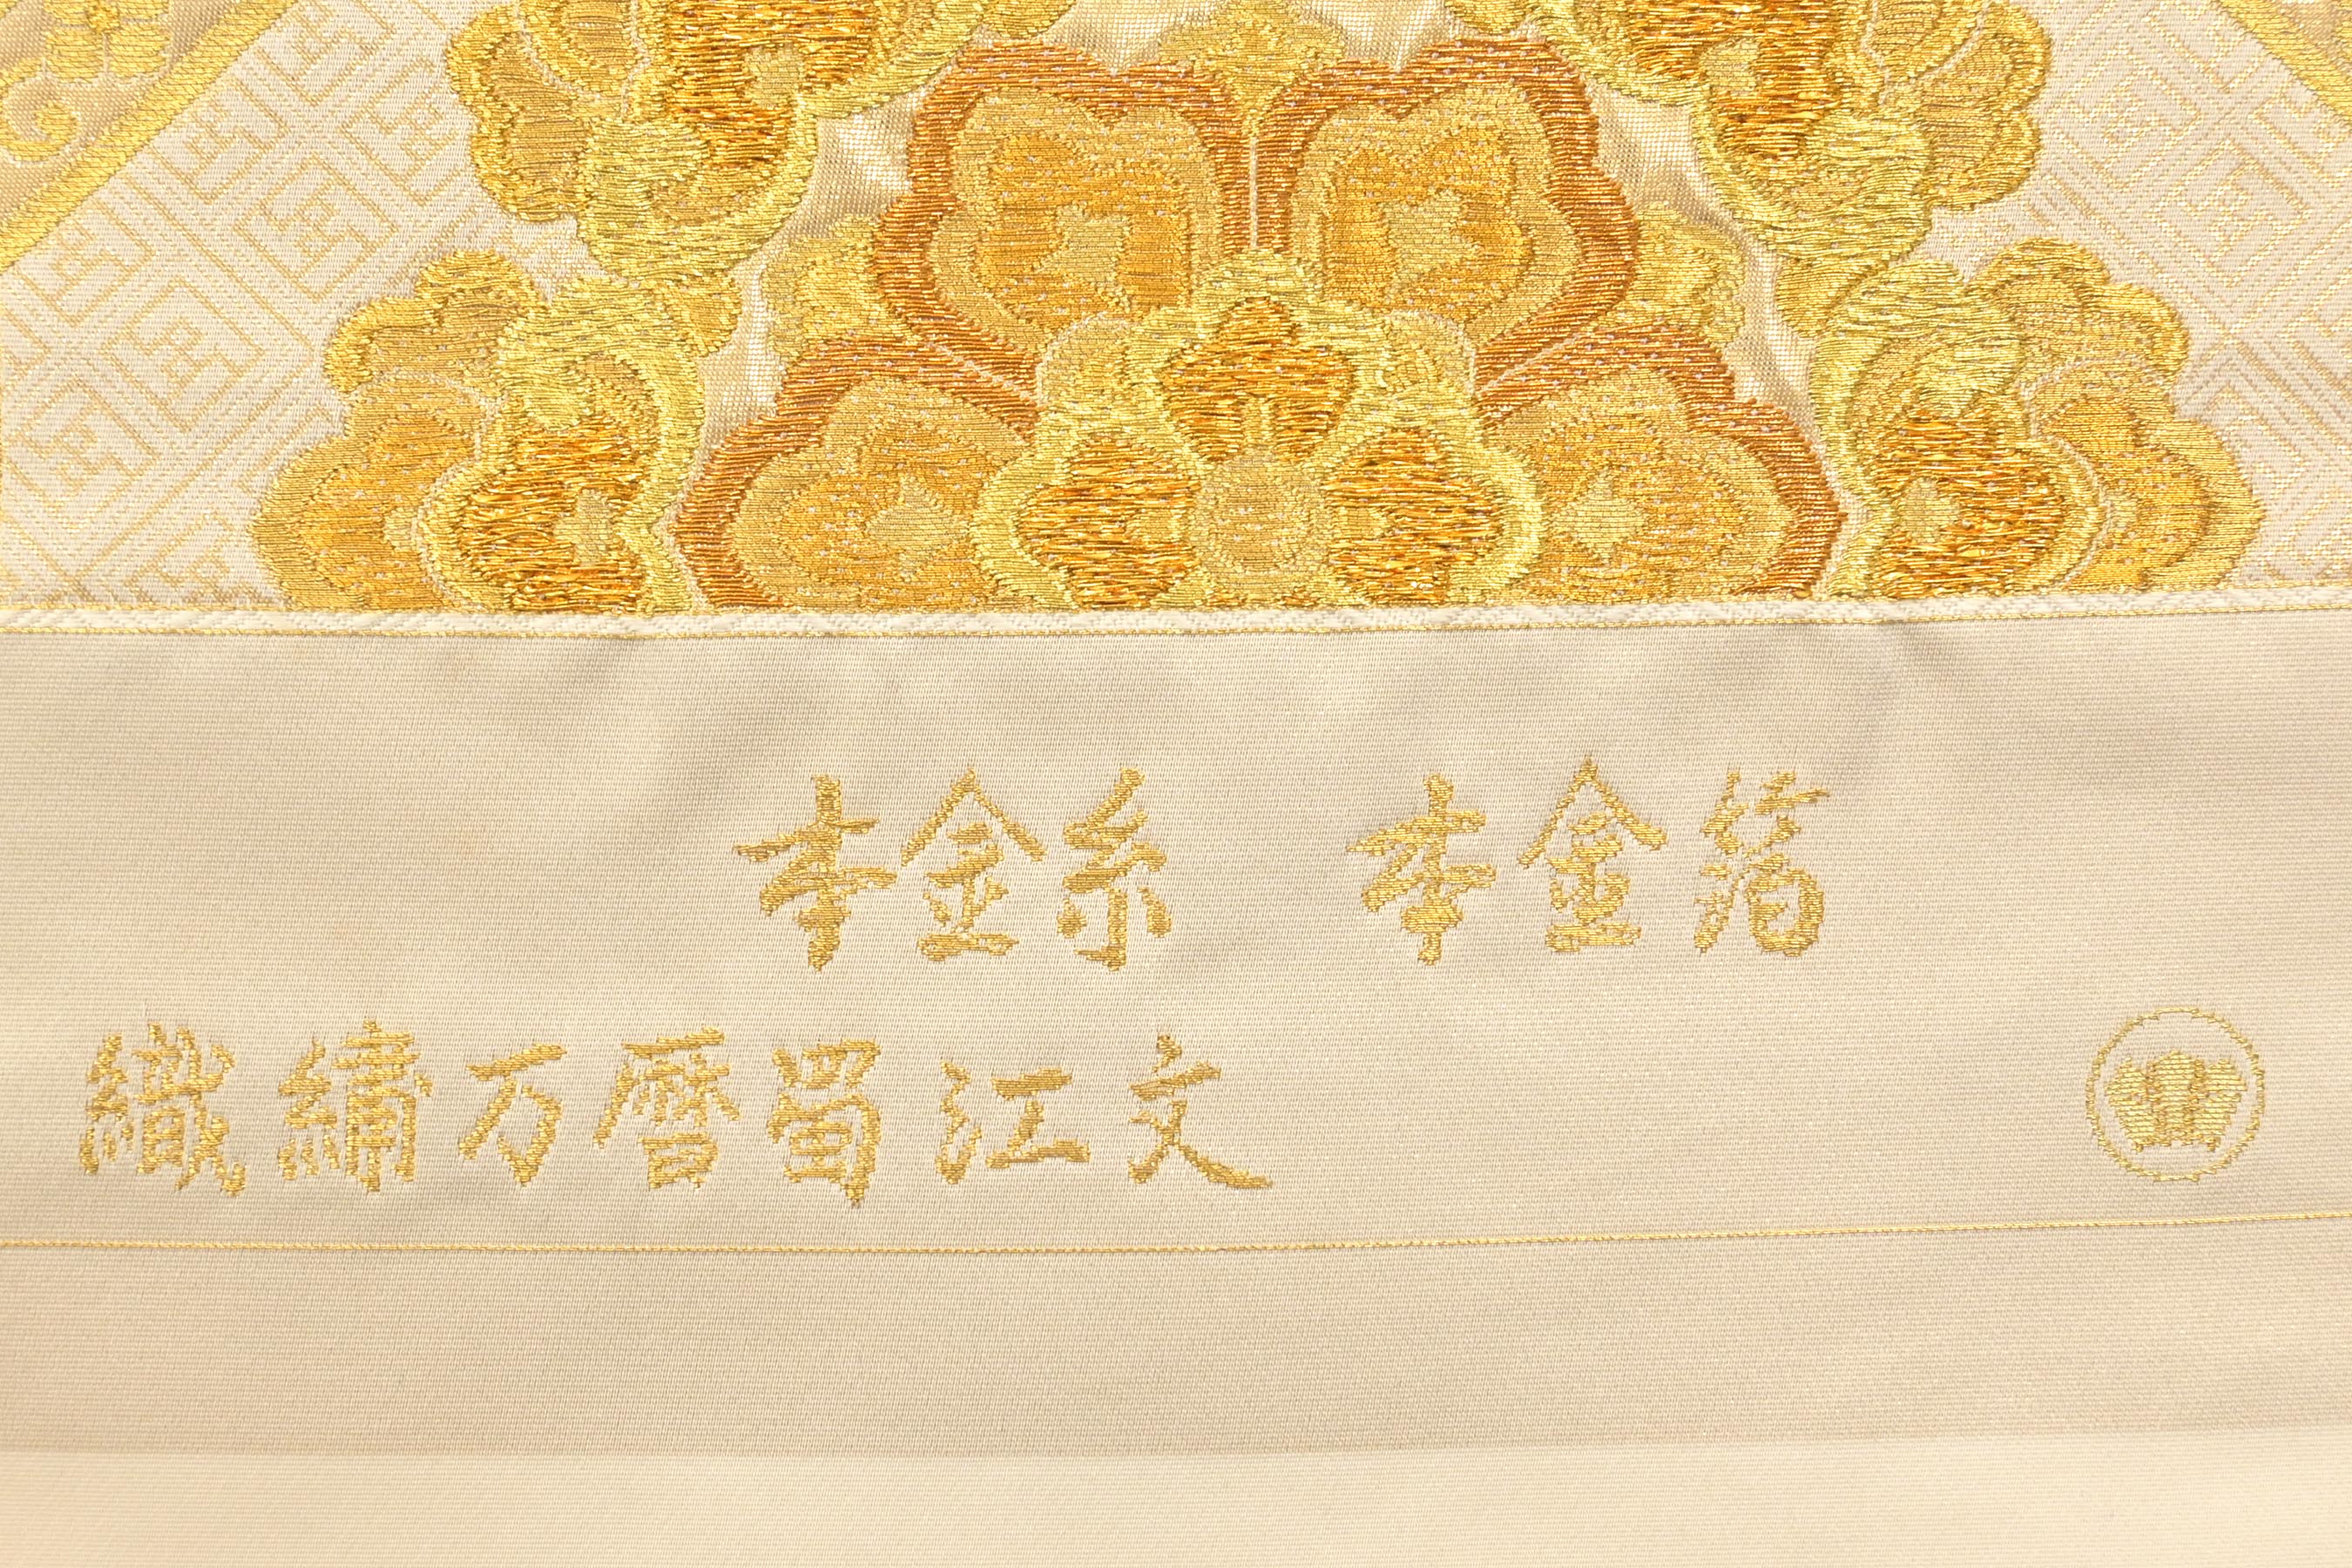 本金糸 本金箔
織繡万暦蜀江文